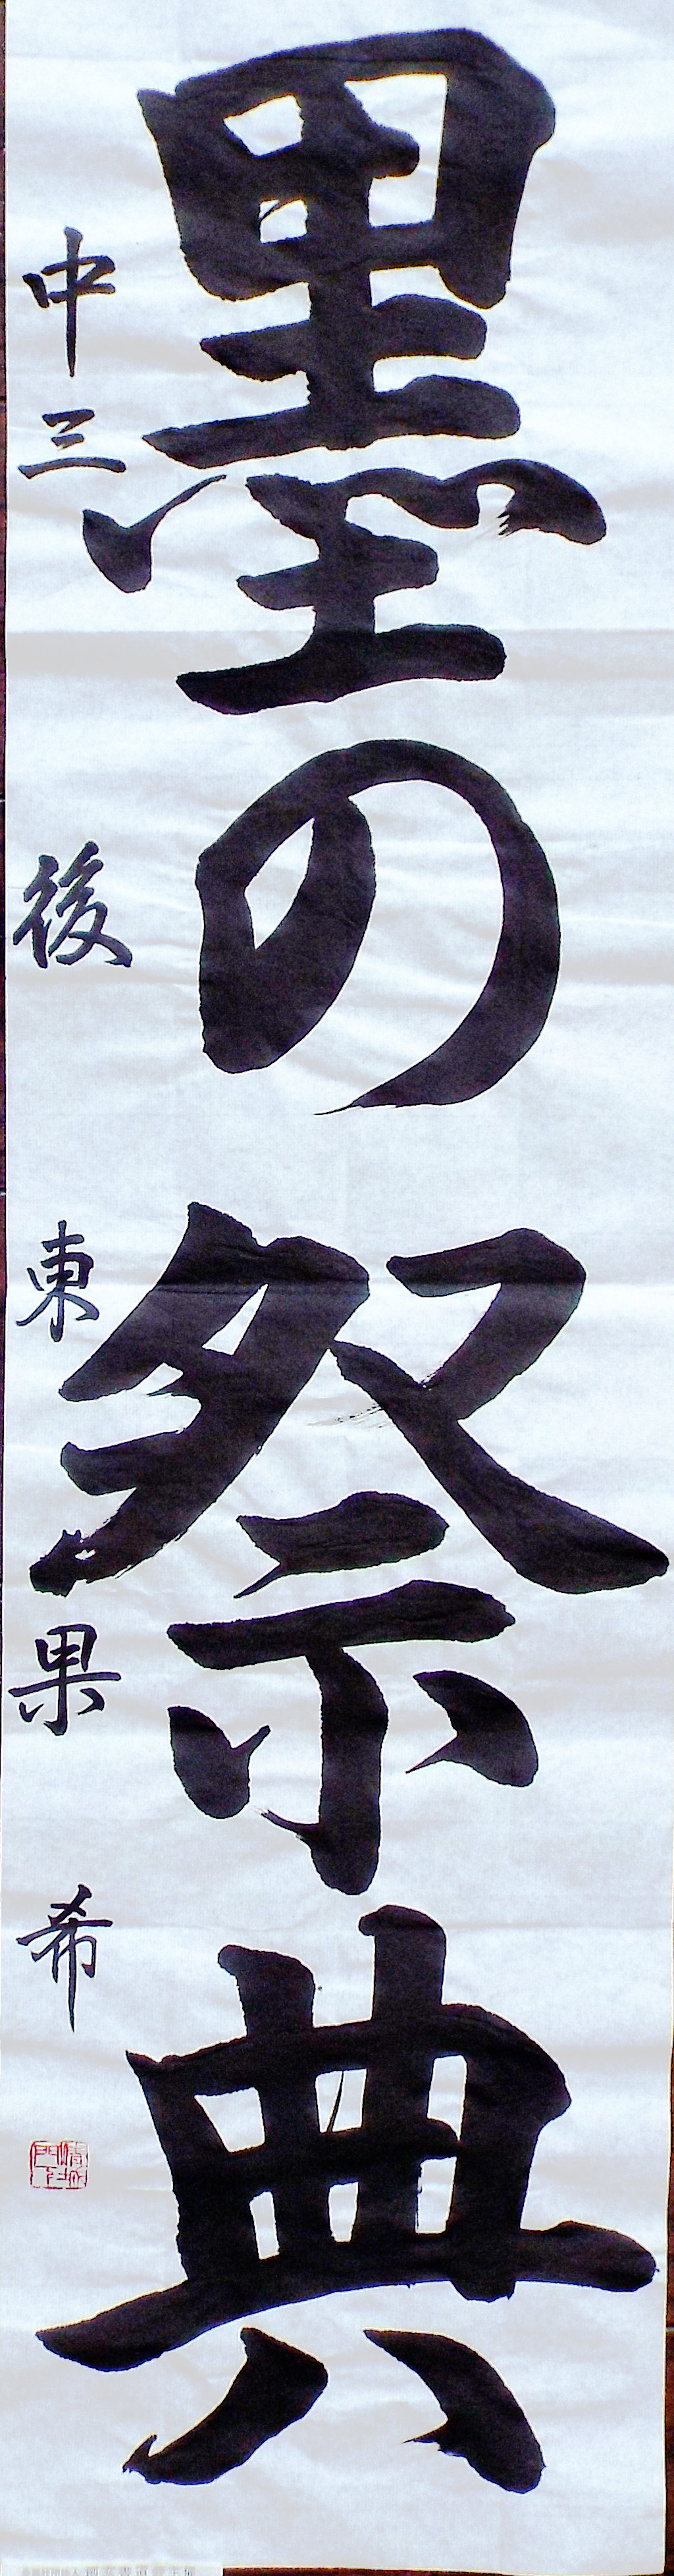 墨の祭典
中三 後東果希